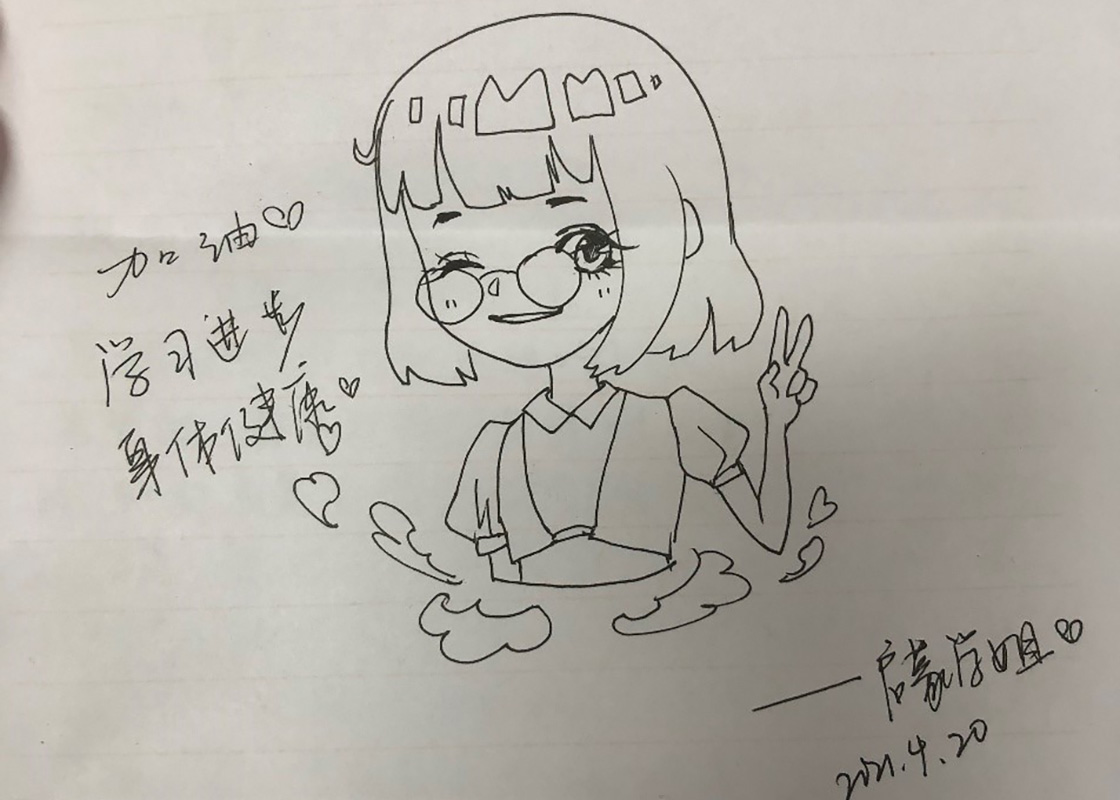 加油
学习进步
身体健康
——启蒙学姐
2021.4.20